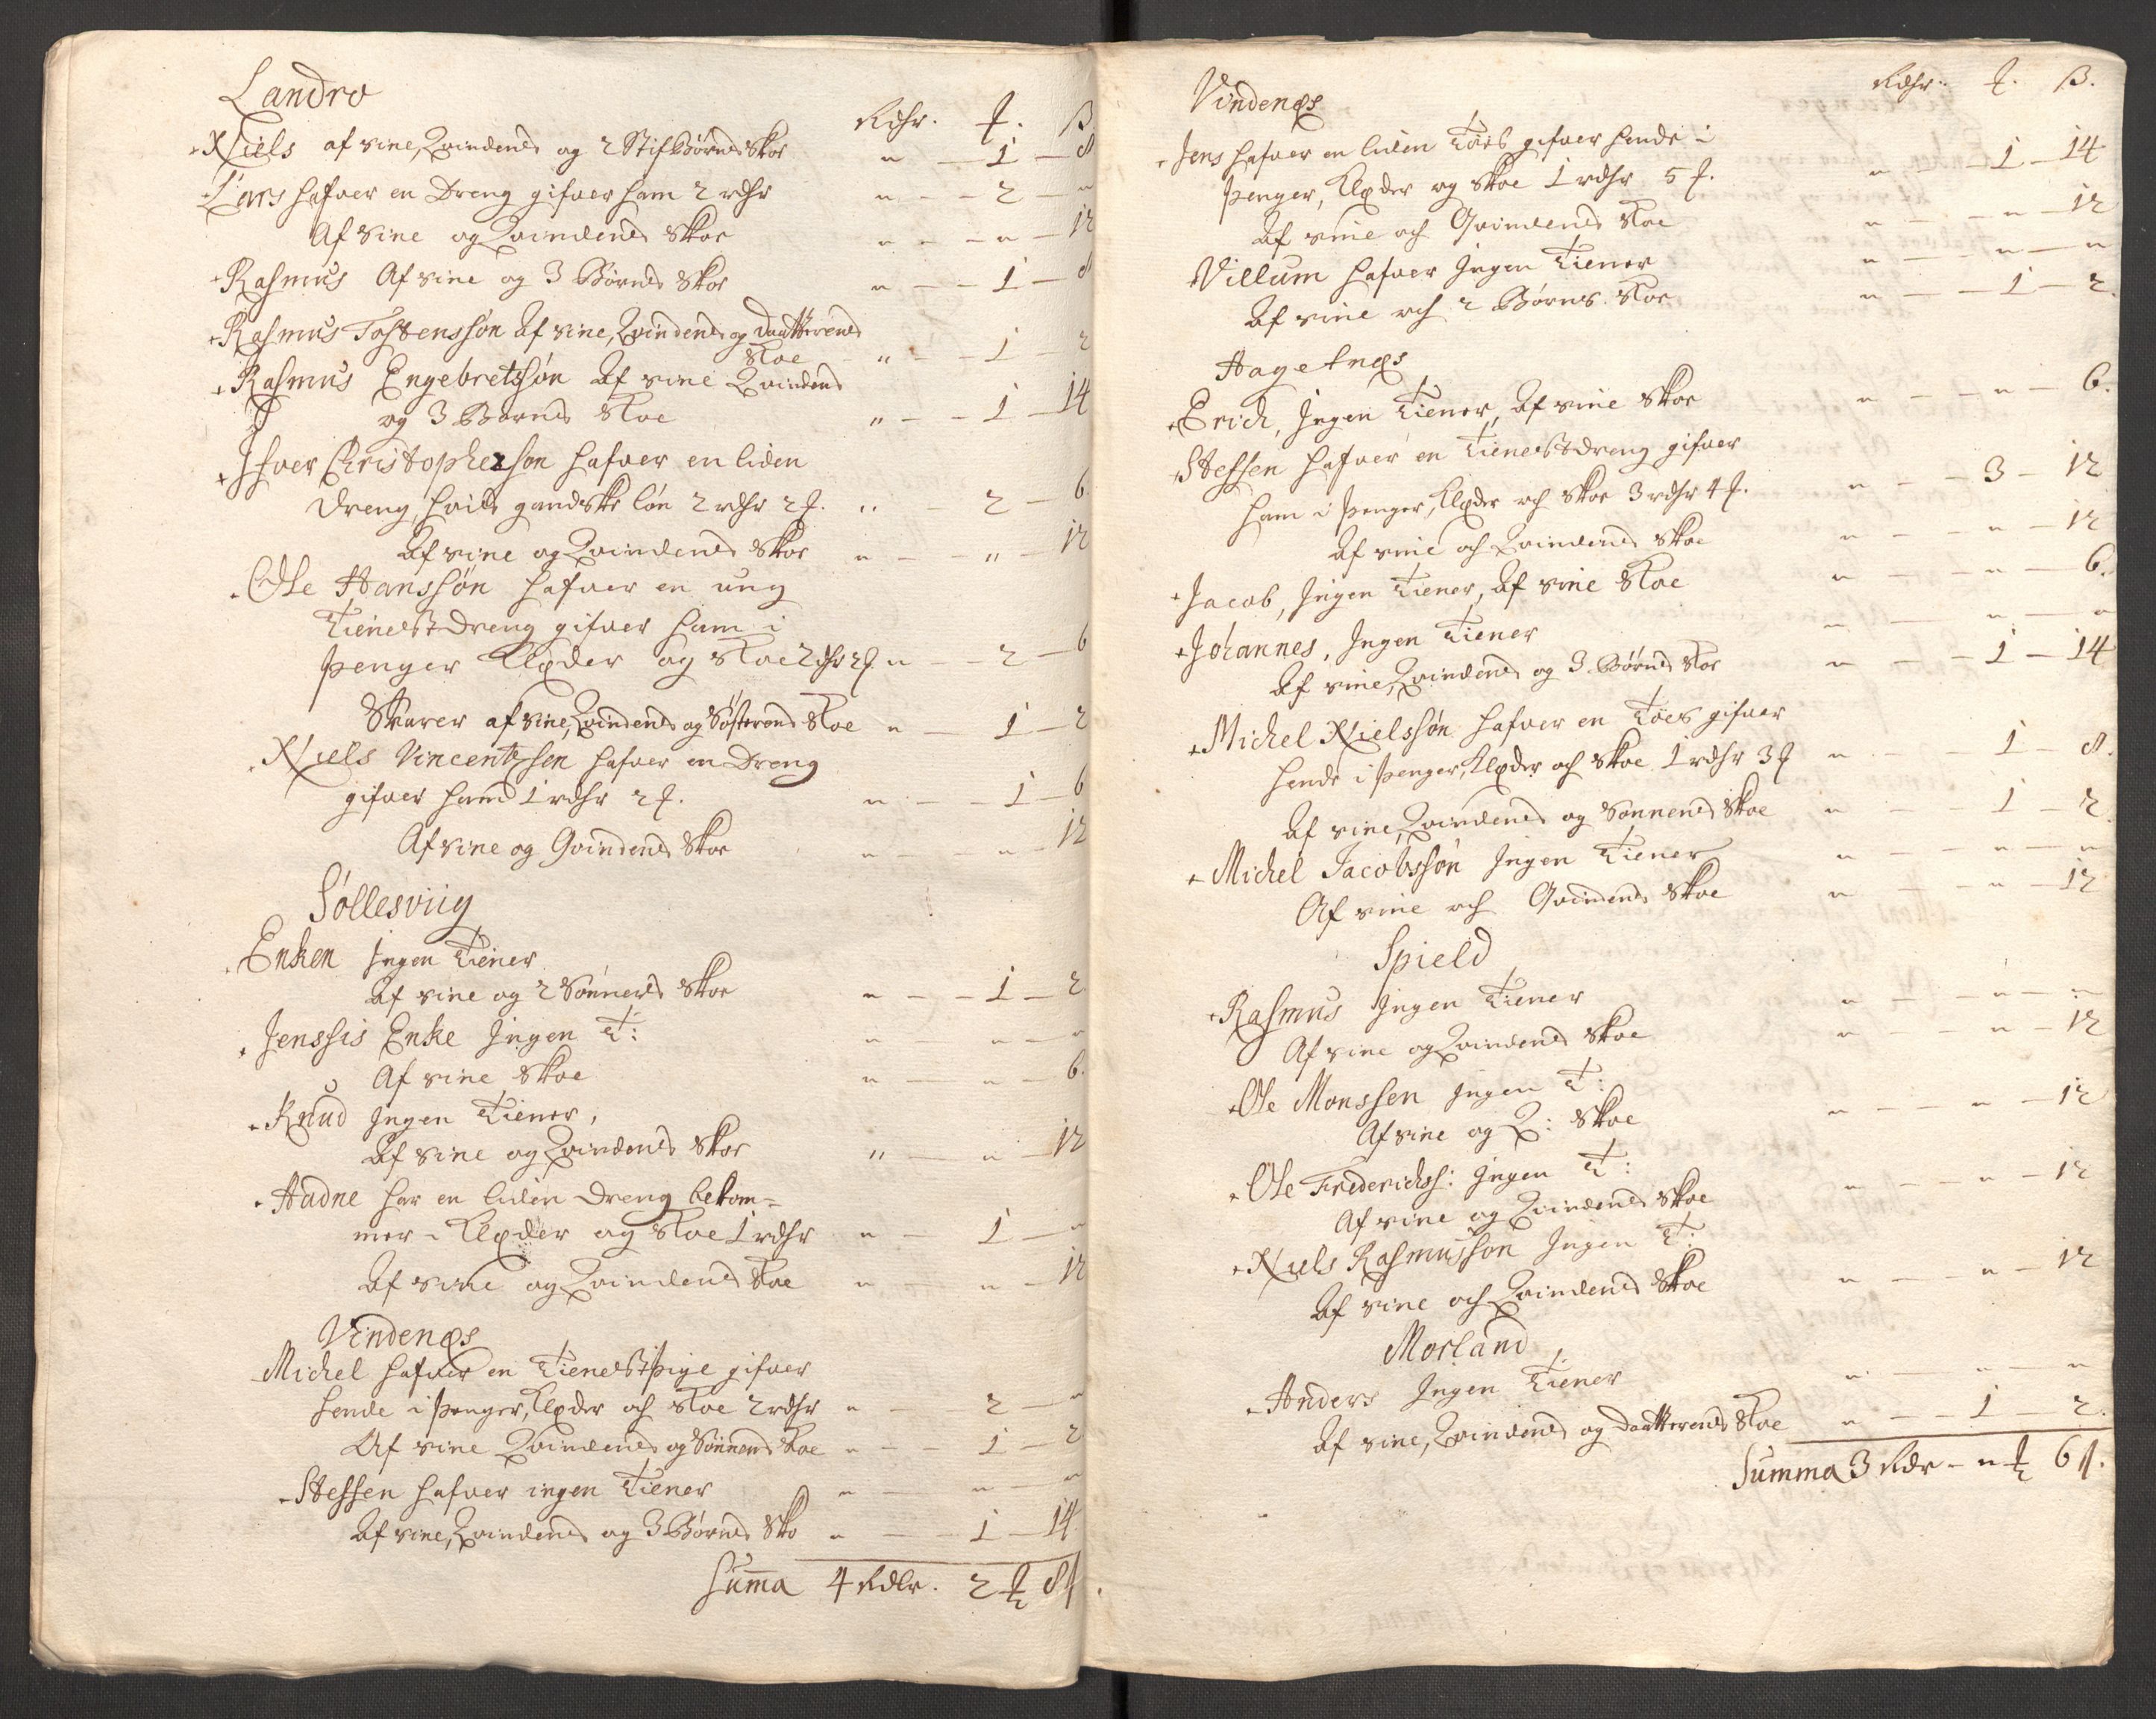 Landro
Rihr. ƒ. ß
Niels af sine, Qvindens og 2 Stifbørns Skoe " 1 8
Lars hafver en Dreng gifver ham 2 rdhr " 2 "
Af Sine og Qvindens Skoe " " 12
Rasmus Af sine og 3 Børns Skoe " 1 8
Rasmus Tostenssøn Af sine, Qvindens og Daatterens
Skoe " 1 2
Rasmus Engebretssøn Af sine Qvindens
og 3 Børns Skoe " 1 14
Ifver Christophersøn hafver en liden
Dreng, hvis gandske løn 2 rdhr 2 ƒ. " 2 6
Af sine og Qvindens Skoe " " 12
Ole Hanssøn hafver en ung
Tieneste Dreng gifver ham i
Penger Klæder og Skoe 2 rdhr 2 ƒ. " 2 6
Svarer af sine, Qvindens og Søsterens Skoe " 1 2
Niels Vincentzsen hafver en Dreng
gifver ham 1 rdhr 2 ƒ. " 1 6
Af sine og Qvindens Skoe " " 12
Søllesviig
Enken Ingen Tiener
Af sine og 2 Sønners Skoe " 1 2
Jenssis Enke Ingen T: " " "
Af sine Skoe " " 6.
Knud Ingen Tiener,
Af sine og Qvindens Skoe " " 12
Audne har en liden Dreng bekom=
mer i Klæder og Skoe 1 rdhr " 1 "
Af sine og Qvindens Skoe " " 12
Vindenæs
Michel hafver en Tieneste Pige gifver
hende i Penger, Klæder och Skoe 2 rdhr " 2 "
Af sine Qvindens og Sønnens Skoe " 1 2
Steffen hafver ingen Tiener " " "
Af sine, Qvindens og 3 Børns Sko " 1 14
Summa 4 Rdlr. 2 ƒ 8 ß.
Vindenæs
Rdhr. ƒ. ß.
Jens hafver en liden Tøes gifver hende i
Penger, Klæder og Skoe 1 rdhr 5 ƒ. " 1 14
Af sine och Qvindens Skoe " " 12
Villum hafver Ingen Tiener " " "
Af sine och 2 Børns Skoe " 1 2.
Hagetnæs
Erich, Ingen Tiener, Af sine Skoe " " 6.
Steffen hafver en Tieneste Dreng gifver
ham i Penger, Klæder och Skoe 3 rdhr 4 ƒ. " 3 12
Af sine och Qvindens Skoe " " 12
Jacob, Ingen Tiener, Af sine Skoe " " 6.
Johannes, Ingen Tiener " " "
Af sine, Qvindens og 3 Børns Skoe " 1 14
Michel Nielssøn hafver en Tøes gifver
hende i Penger, Klæder och Skoe 1 rdhr 3 ƒ " 1 8.
Af sine, Qvindens og Sønnens Skoe " 1 2.
Michel Jacobssøn Ingen Tiener " " "
Af sine och Qvindens Skoe " " 12
Spield
Rasmus Ingen Tiener " " "
Af sine og Qvindens Skoe " " 12
Ole Monssen Ingen T:
Af sine og Q: Skoe " " 12
Ole Frederichs: Ingen T:
Af sine og Qvindens Skoe " " 12
Niels Rasmussøn Ingen T:
Af sine och Qvindens Skoe " " 12
Morland
Anders Ingen Tiener " " "
Af sine, Qvindens og Daatterens Skoe " 1 2.
Summa 3 Rdr - " ƒ 6 ß.